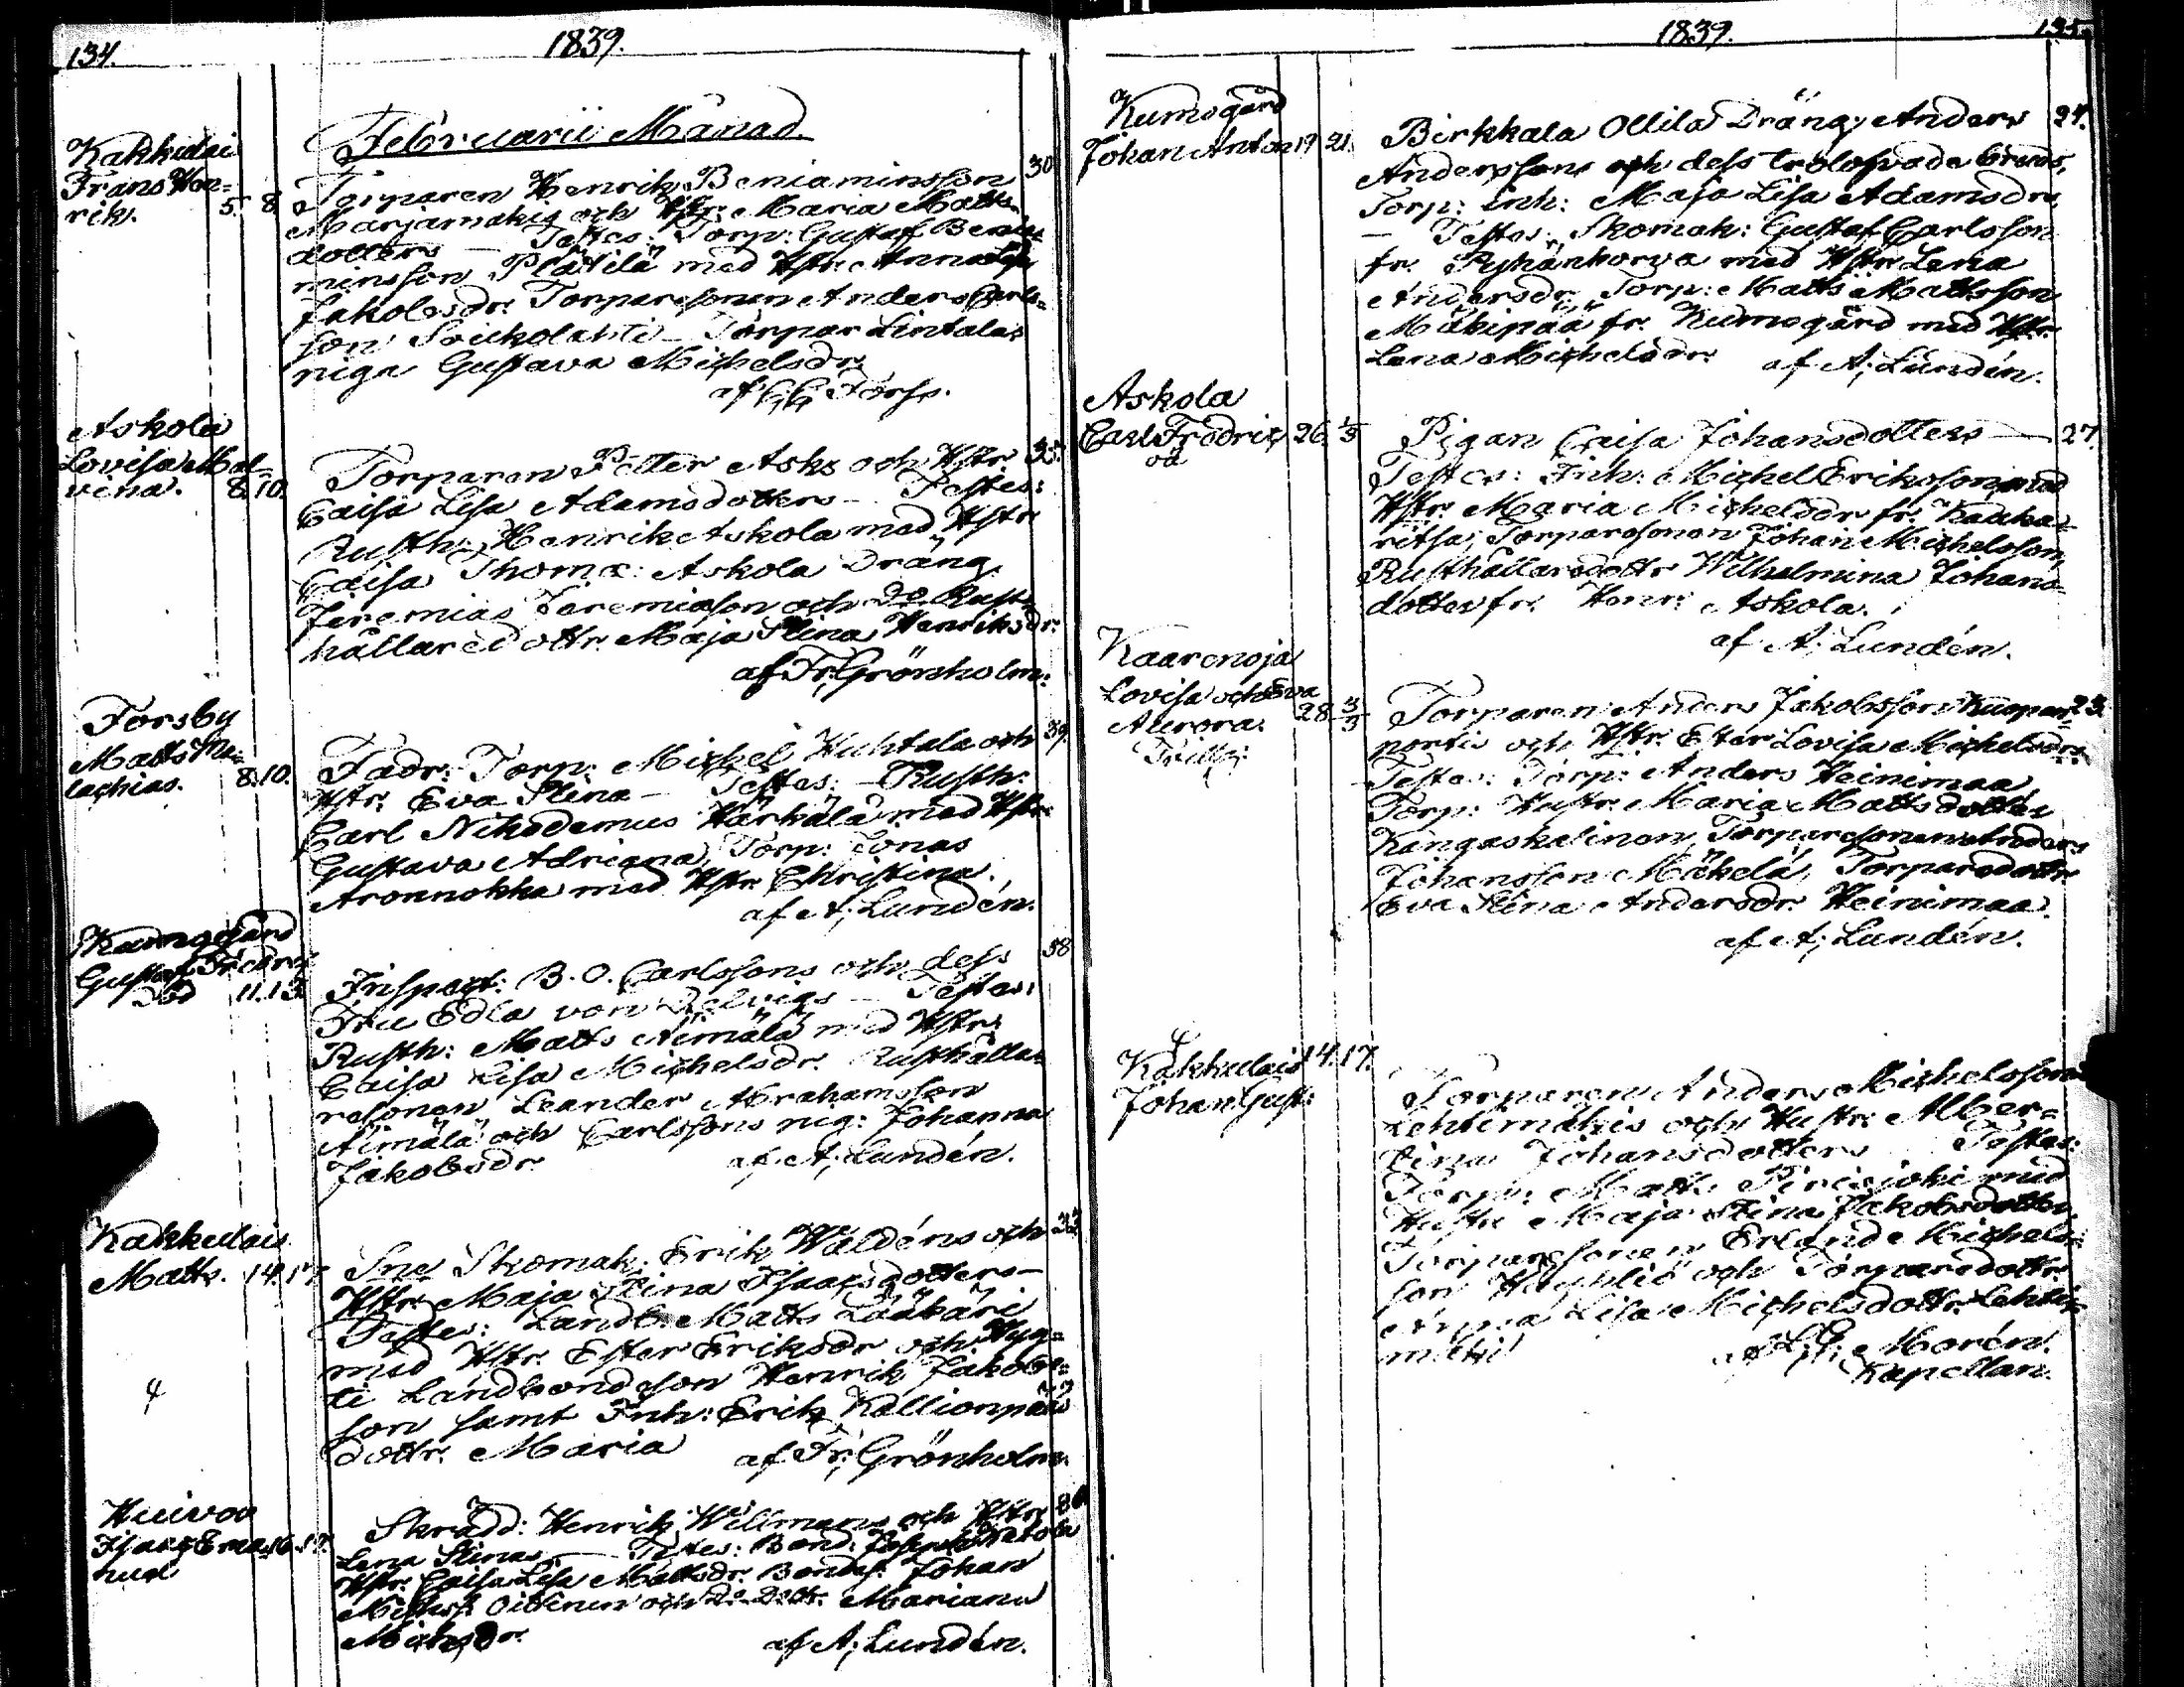 134.
1839.
Februarii Månad.
Kakkulai
Frans Hen=
rik.
5. 8
Torparen Henrik Beniaminsson 30
Marjamäkis och Hstr: Maria Matts
dotters — Testes: Torp: Gustaf Benia
minsson Plätilä med Hstr. Anna Lisa
Jakobsdr. Torparesonen Anders Carls=
son Souckolahti — Torpar Lintalas
piga Gustava Michelsdr.
af Forss.
Askola
Lovisa Mal
vina. 8. 10.
Torparen Petter Asks och Hstr
Caisa Lisa Adamsdotters — Testes:
Rusth: Henrik Askola med Hstr
Caisa Thomæ: Askola Dräng
Jeremias Jeremiasson och do Rust
hållaredottr. Maja Stina Henriksdr.
af Fr: Grönholm.
Forsby
Matts Ma=
lachias. 8. 10.
Fadr: Torp: Michel Huhtala och 39.
Hstr. Eva Stina — Testes: — Rusth:
Carl Nikodemus Härkälä med Hstr.
Gustava Adriana, Torp: Jonas
Aronnokka med Hstr Christina.
af A; Lundén.
Gustaf Fredric
död 11. 13.
Inspect: B. O. Carlssons och dess 38
Fru Edla von Qvigs — Testes:
Rusth: Matts Äimälä med Hstr.
Caisa Lisa Michelsdr. Rusthålla=
resonen Leander Abrahamsson
Äimälä och Carlssons pig: Johanna
Jakobsdr. af A; Lundén.
Kakkulais
Matts. 14. 17
4
Sne Skomak: Erik Waldéns och
Hstr. Maja Stina Isaacsdotters —
Testes: Landb. Matts Lääkäri
med Hstr. Ester Eriksdr och Hyg=
ti Landbondeson Henrik Jakobs=
son samt Inh: Erik Kallionpää
dottr. Maria af Fr: Grönholm.
Huivoo
Isaac Ema
nuel 16. 17.
Skrädd: Henrik Willmans och Hstr
Lena Stinas — Testes: Bond: Joseph
Hstr. Caisa Lisa Mattsdr. Bondes: Johan
Michelss. Oittinen och Do. Dottr. Mariana
Michelsdr. af A; Lundén.
1839.
135.
Kumogård
Johan Anton 19 21.
Birkkala Ollila Dräng: Anders 24.
Anderssons och dess trolofvade bruds,
Torp: inh: Maja Lisa Adamsdrs
— Testes: Skomak: Gustaf Carlsson
fr. Pyhänkorva med Hstr Lena
Andersdr, Torp: Matts Mattsson
Mäkipää fr. Kumogård med Hstr.
Lena Michelsdr. af A; Lundén.
Askola
Carl Fredric 26. 1/3
oä
Pigan Caisa Johansdotters — 27
Testes: Inh: Michel Eriksson med
Hstr. Maria Michelsdr fr. Kaaka=
ritsa, Torparesonen Johan Michelsson,
Rusthållaredottr Wilhelmina Johans
dotter fr. Henr: Askola.
af A; Lundén.
Kaarenoja
Lovisa och Eva
Aurora. 28 3/3
Tvill:
Torparen Anders Jakobsson Kuopan 23.
portis och Hstr. Ester Lovisa Michelsdrs
Testes: Torp: Anders Heinimaa,
Torp: Hustr. Maria Mattsdotter
Kangaskalinen, Torparesonen Anders
Johansson Mäkelä, Torparedottr
Eva Stina Andersdr. Heinimaa.
af A; Lundén.
4
Kakkulais 14. 17.
Johan Gust:
Torparen Anders Michelssons
Lehtimäkis och Hustr: Alber=
tina Johansdotters Testes:
Torp: Matts Pirisjoki med
Hustr Maja Stina Jakobsdotter,
Torparesonen Erland Michels=
son och Torparedottr.
Anna Lisa Michelsdottr. Lehti=
mäki
Morén.
Kapellan.